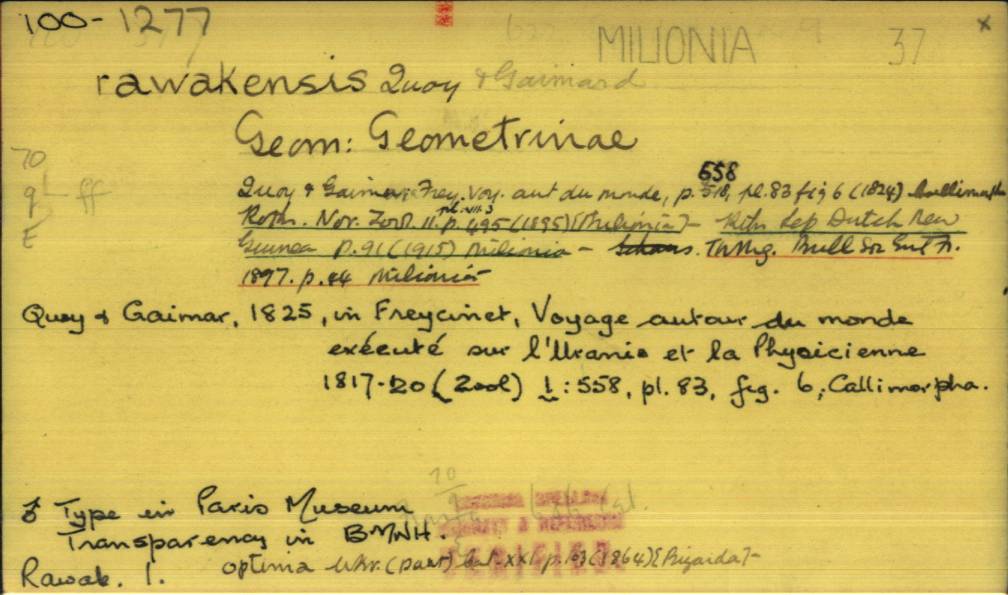 100-1277
MILIONIA 37 x
rawakensis Quoy & Gaimard
Geom: Geometrinae
Quoy & Gaimard, Frey. Voy. aut du monde, p. 518, 558 pl. 83 fig 6 (1824)
Roths. Nov. Zool. II. p. 495 pl. VII. 3 (1895) [Milionia] - Rths Lep Dutch New
Guinea p. 91 (1915) Milionia - Schaus. Th Mg. Bull Soc Ent Fr.
1897. p. 44 Milionia
Quoy & Gaimar, 1825, in Freycinet, Voyage autour du monde
exécuté sur l'Uranie et la Physicienne
1817-20 (Zool) 1: 558, pl. 83, fig. 6; Callimorpha.
♂ Type in Paris Museum
Transparency in BMNH.
Rawak. I. optima Wkr. (part) Cat. XXXI. p. 103 (1864)
70
ff